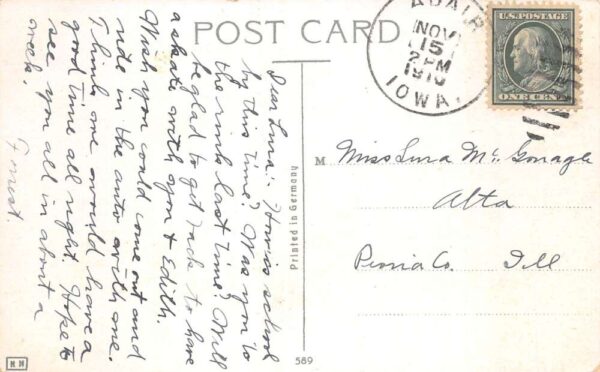 POST CARD
ADAIR
NOV
15
2 PM
1910
IOWA.
U.S. POSTAGE
ONE CENT
Dear Lura: How is school
by this time? Was you to
the rink last time? Will
be glad to get back to have
a skate with you & Edith.
Wish you could come out and
ride in the auto with one.
Think one would have a
good time all right. Hope to
see you all in about a
week.
Forrest
Printed in Germany
M
Miss Lura Mc. Gonagle
Alta
Peoria Co. Ill
589